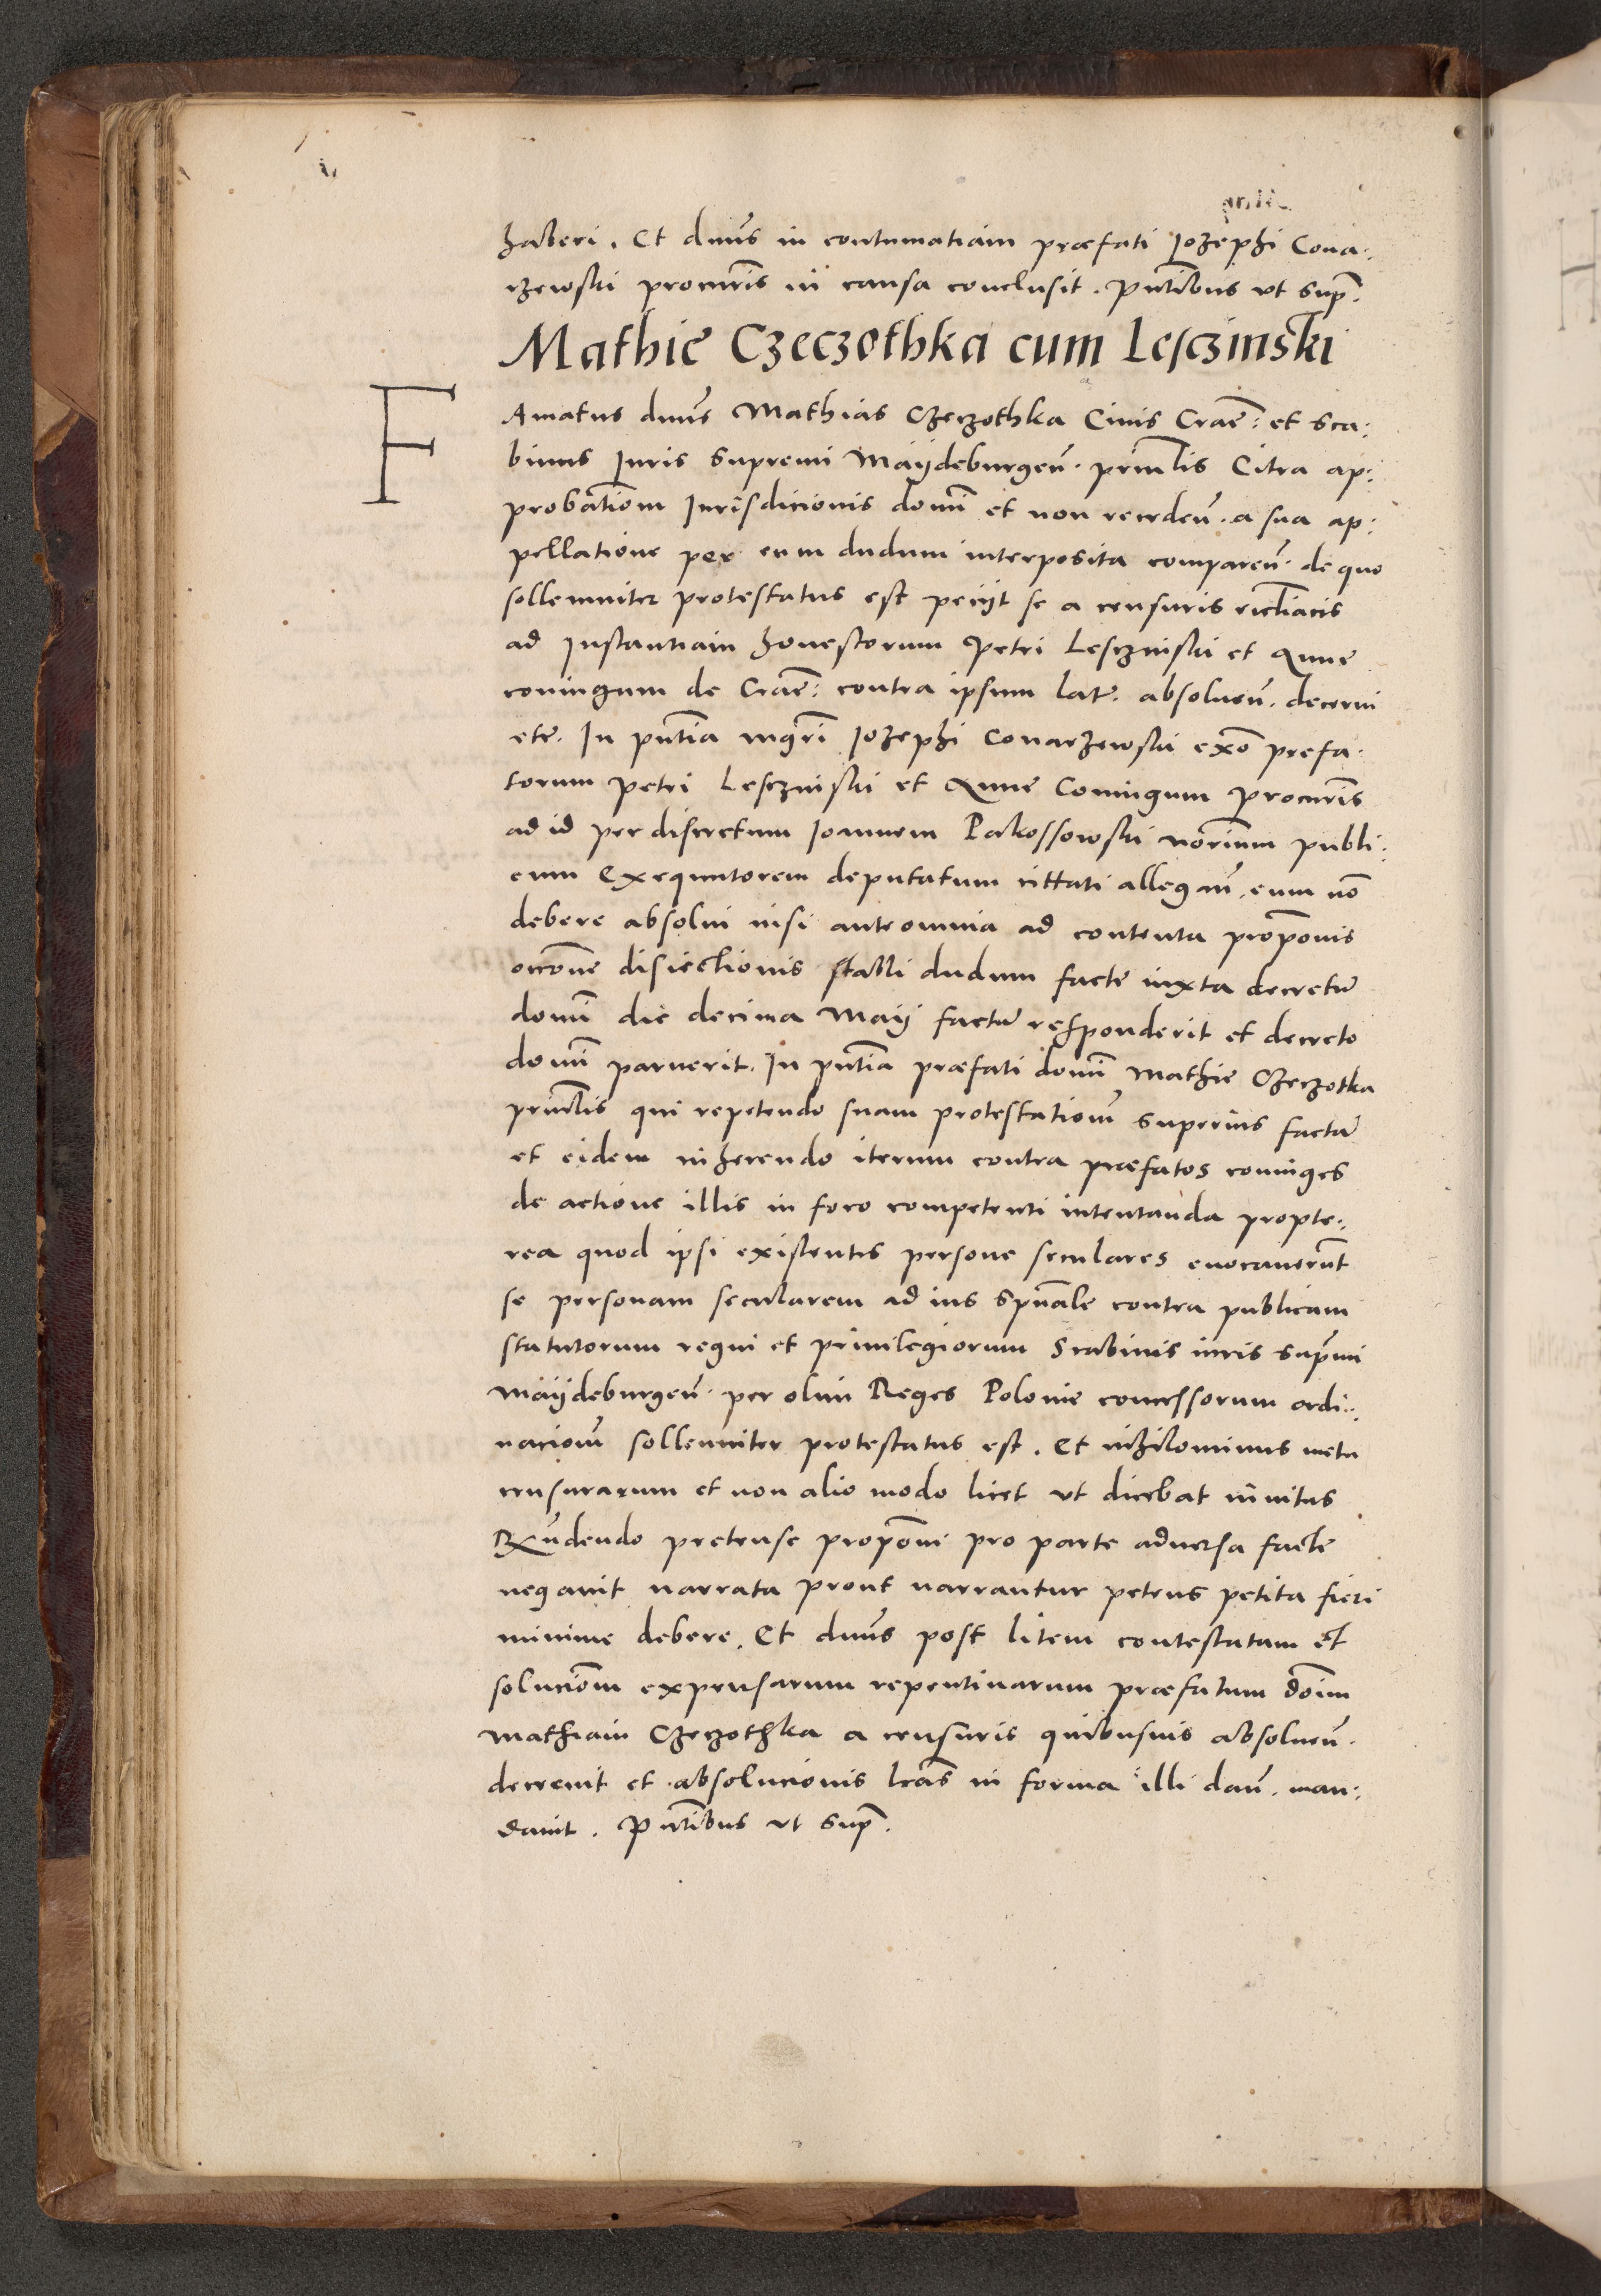 haberi. Et dnūs in contumatiam præfati Jozephi Cona:
rzewski procurr̄is in causa conclusit. Pn̄tibus ut sup̄.
Mathie Czeczothka cum Lesczinski
FAmatus dnūs Mathias Czeczothka Civis Crac̄: et Sca:
binus Juris Supremi Maydeburgen̄. prin̄lis Citra ap:
probatiom̄ Jurisdicionis domī et non recedeñ. a sua ap:
pellatione per eum dudum interposita compareñ. de quo
sollemniter protestatus est petiit se a censuris
ad Instantiam honestorum Petri Lesczinski et Anne
coniugum de Crac̄: contra ipsum lat̄. absolueñ. decerni
etc̄. In pn̄tia mgrī Jozephi Conarzewski ex̄o prefa:
torum Petri Lesczinski et Anne Coniugum procurr̄is
ad id per discretum Joannem Pakossowski nōrium publi:
cum Exequutorem deputatum cittati allegañ. eum nō
debere absolui nisi ante omnia ad contenta propōnis
disiectionis stabli dudum facte iuxta decretū
domī die decima Maij factū responderit et decreto
domī paruerit. In pn̄tia præfati domī Mathie Czeczotka
prin̄lis qui repetendo suam protestationē superius factā
et eidem inherendo iterum contra præfatos coniuges
de actione illis in foro competenti intentanda propte:
rea quod ipsi existentes persone seculares euocauerūt
se personam secularem ad ius Spūale contra publicam
statutorum regni et priuilegiorum Scabinis iuris supremi
Maydeburgeñ. per olim Reges Polonie concessorum ordi:
nacionē sollenniter protestatus est. Et nihilominus metu
censurarum et non alio modo licet ut dicebat inuitus
Rn̄dendo pretense propōni pro parte aduersa facte
negauit narrata prout narrantur petens petita fieri
minime debere. Et dnūs post litem contestatam et
solucionē expensarum repentinarum præfatum dōnm
Mathiam Czeczothka a censuris quibusuis absolueñ.
decreuit et absolucionis lr̄as in forma illi dañ. man:
dauit. Pn̄tibus ut sup̄.